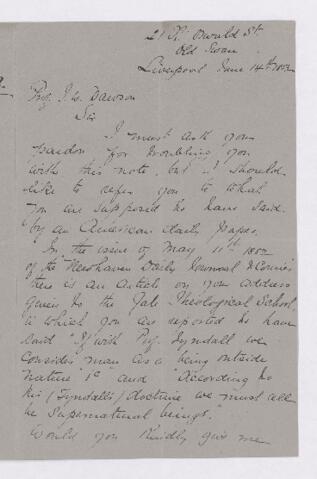 21 St Oswald St.
Old Swan
Liverpool June 14th 1882
Prof J. W. Dawson
Sir
I must ask your
pardon for troubling you
with this note, but I should
like to refer you to what
you are supposed to have said
by an American daily paper.
In the issue of May 11th 1882
of the "Newhaven Daily Journal & Courier"
there is an Article on your address
given to the Yale Theological School
in which you are reported to have
said "If with Prof. Tyndall we
consider man as a being outside
nature" and "According to
his (Tyndall's) doctrine we must all
be supernatural beings."
Would you kindly give me